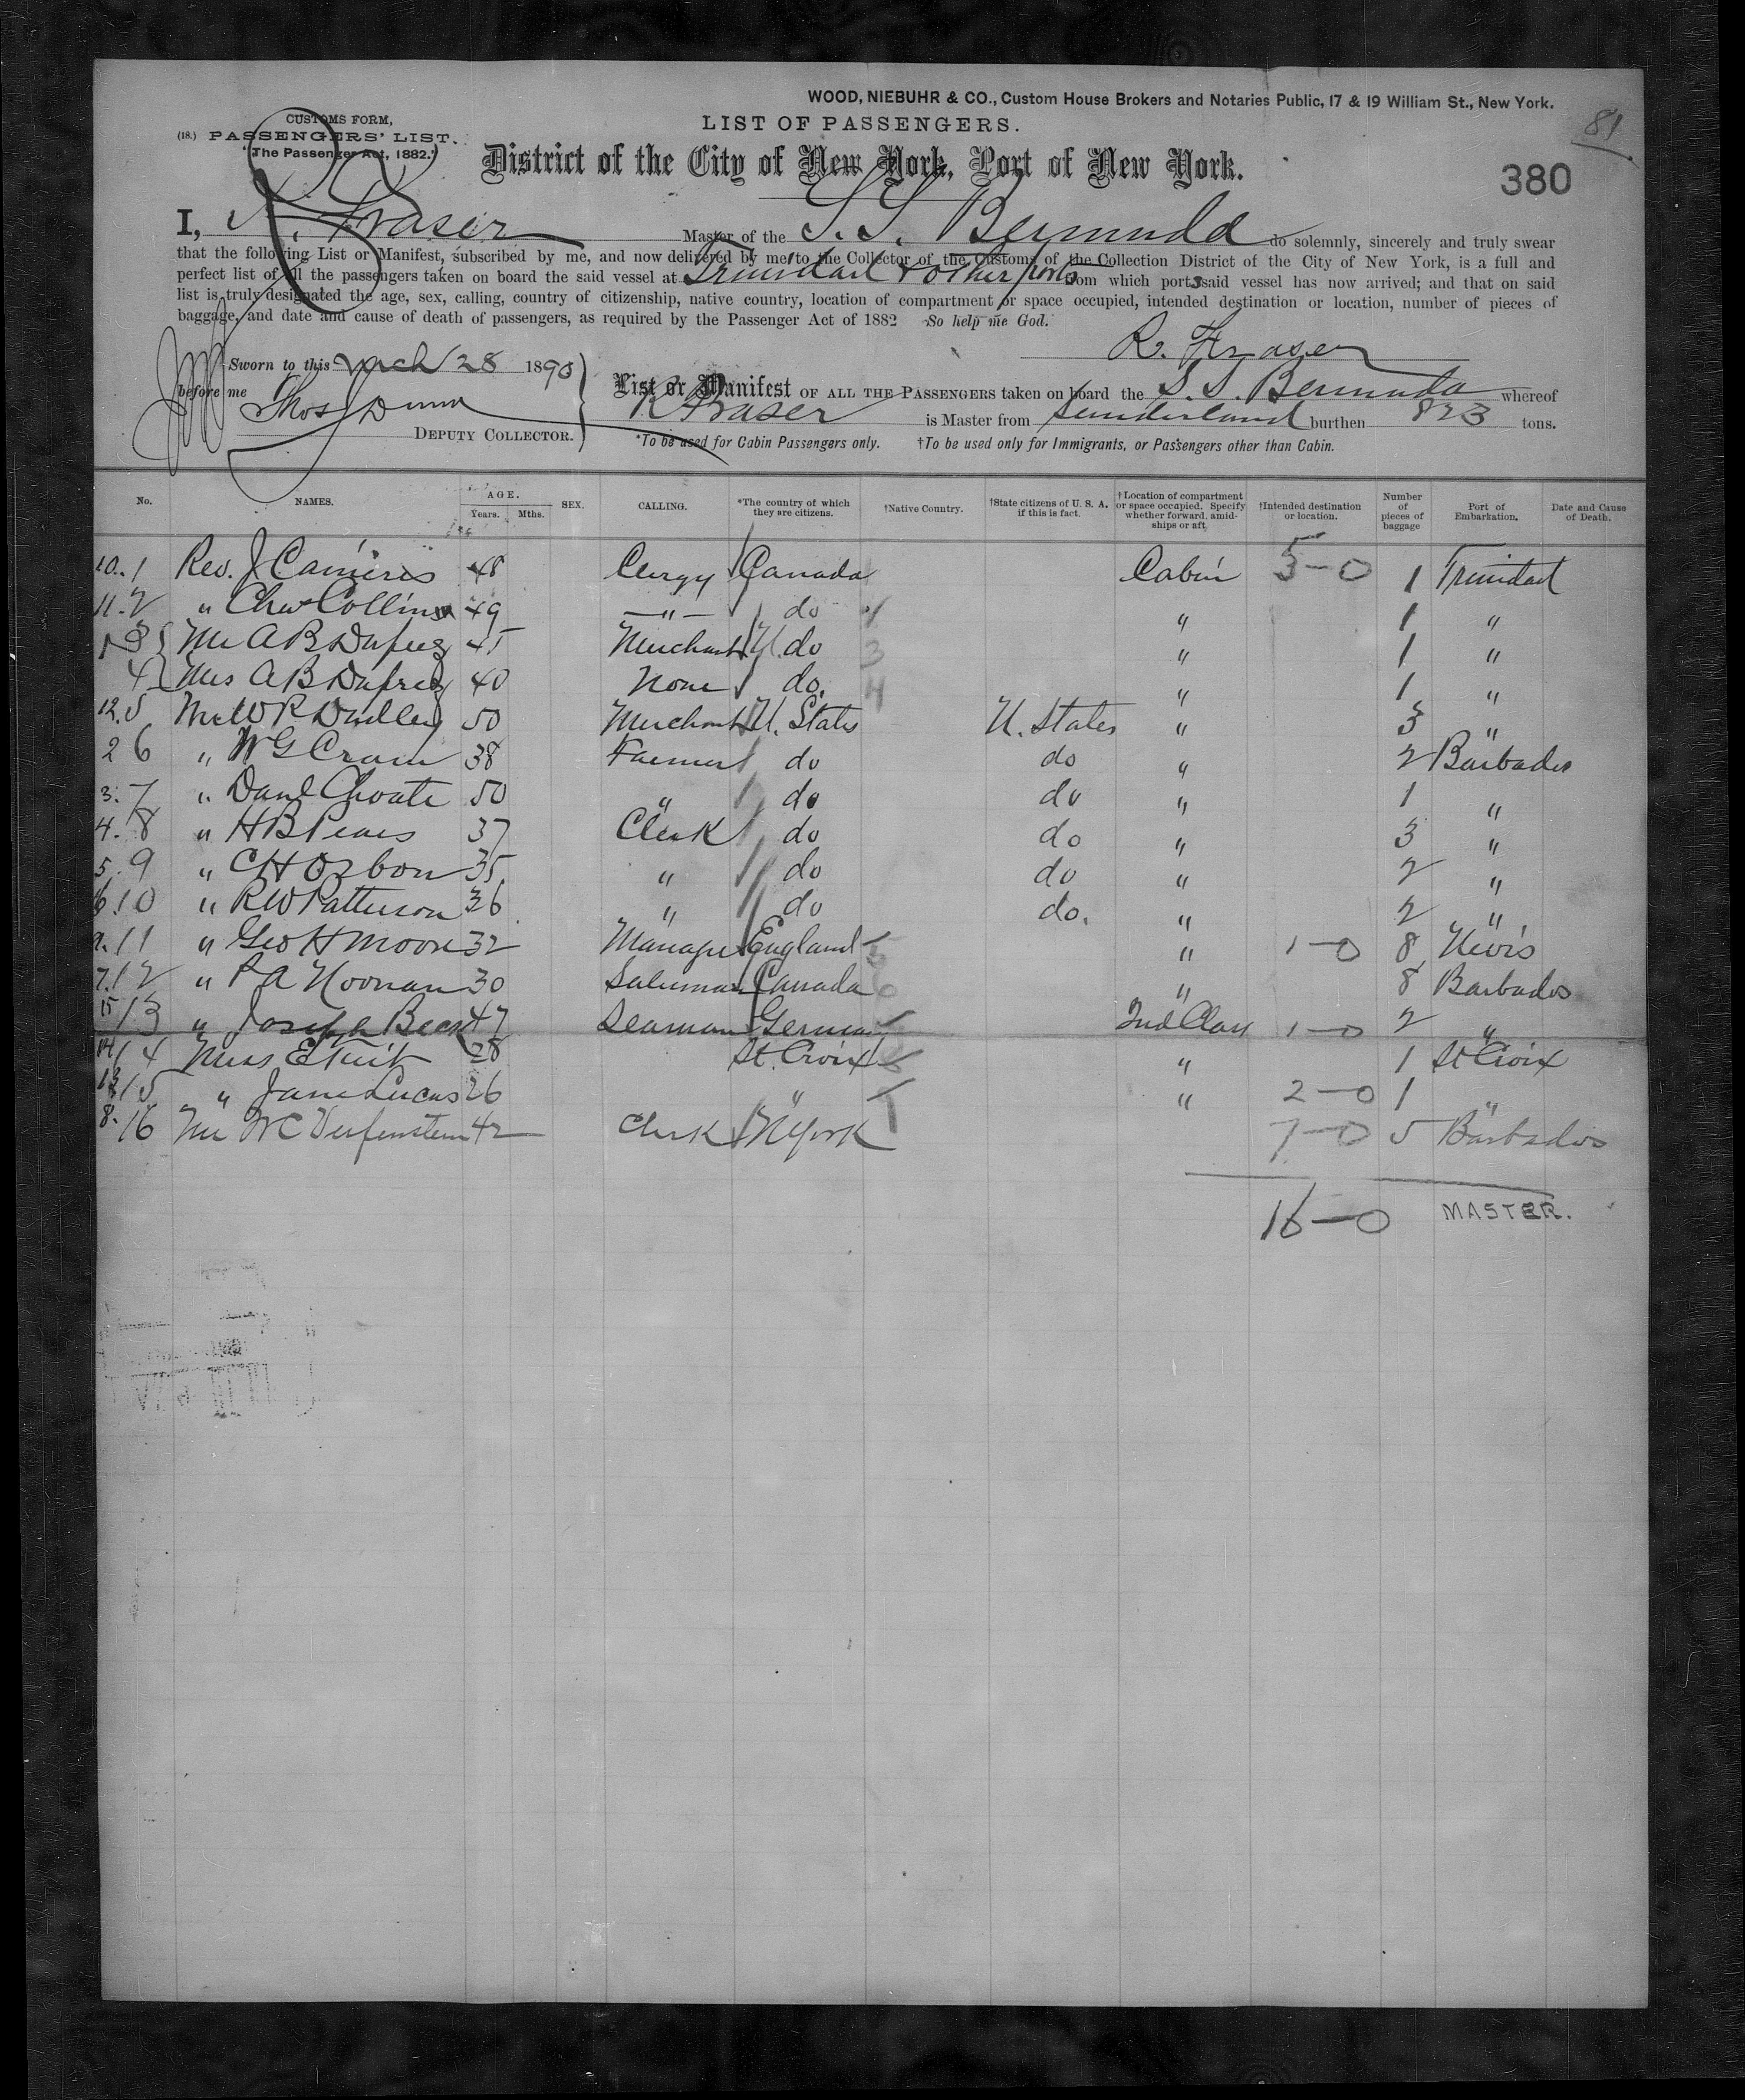 WOOD, NIEBUHR & CO., Custom House Brokers and Notaries Public, 17 & 19 William St., New York.
CUSTOMS FORM,
LIST OF PASSENGERS.
81
(18.) PASSENGERS' LIST.
"The Passenger Act, 1882."
District of the City of New York, Port of New York.
380
I, R. Fraser Master of the S.S. Bermuda do solemnly, sincerely and truly swear
that the following List or Manifest, subscribed by me, and now delivered by me to the Collector of the Customs of the Collection District of the City of New York, is a full and
perfect list of all the passengers taken on board the said vessel at Trinidad & other ports from which ports said vessel has now arrived; and that on said
list is truly designated the age, sex, calling, country of citizenship, native country, location of compartment or space occupied, intended destination or location, number of pieces of
baggage, and date and cause of death of passengers, as required by the Passenger Act of 1882 So help me God.
R. Fraser
Sworn to this March 28 1890
before me Thos J Dunn
DEPUTY COLLECTOR.
List or Manifest OF ALL THE PASSENGERS taken on board the S.S. Bermuda whereof
R Fraser is Master from Sunderland burthen 823 tons.
*To be used for Cabin Passengers only. †To be used only for Immigrants, or Passengers other than Cabin.
No. NAMES. AGE. Years. Mths. SEX. CALLING. *The country of which they are citizens. †Native Country. †State citizens of U. S. A. if this is fact. †Location of compartment or space occupied. Specify whether forward, amidships or aft. †Intended destination or location. Number of pieces of baggage Port of Embarkation. Date and Cause of Death.
10. 1 Rev. J 48 Clergy Canada Cabin 5-0 1 Trinidad
11. 2 " Chas Collins 49 " do " 1 "
3 Mr A B Duprey 45 Merchant do 3 " 1 "
4 Mrs A B Duprey 40 None do. 4 " 1 "
12. 5 Mr W R Dudley 50 Merchant U. States U. States " 3 "
2 6 " W G Cram 38 Farmer do do " 2 Barbados
3. 7 " Danl Choate 50 " do do " 1 "
4. 8 " H B Pears 37 Clerk do do " 3 "
5. 9 " C H Osbon 35 " do do " 2 "
6. 10 " R W Patterson 36 " do do. " 2 "
9. 11 " Geo H Moon 32 Manager England 5 " 1-0 8 Nevis
7. 12 " P A Noonan 30 Salesman Canada 6 " 8 Barbados
15 13 " Joseph 47 Seaman Germany 2nd Class 1-0 2 "
14 14 Miss E 28 St. Croix " 1 St Croix
13 15 " Jane Lucas 26 " " 2-0 1 "
8. 16 Mr W C 42 Clerk N York 7-0 5 Barbados
16-0 MASTER.